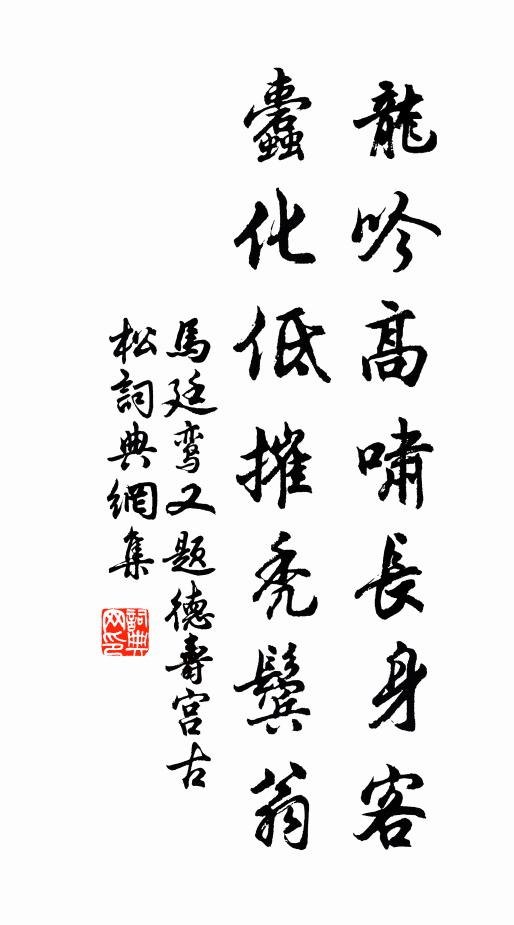 龍吟高嘯長身客
蠹化低摧禿鬢翁
馬廷鸞又題德壽宮古
松詞典網集
詞典
网印